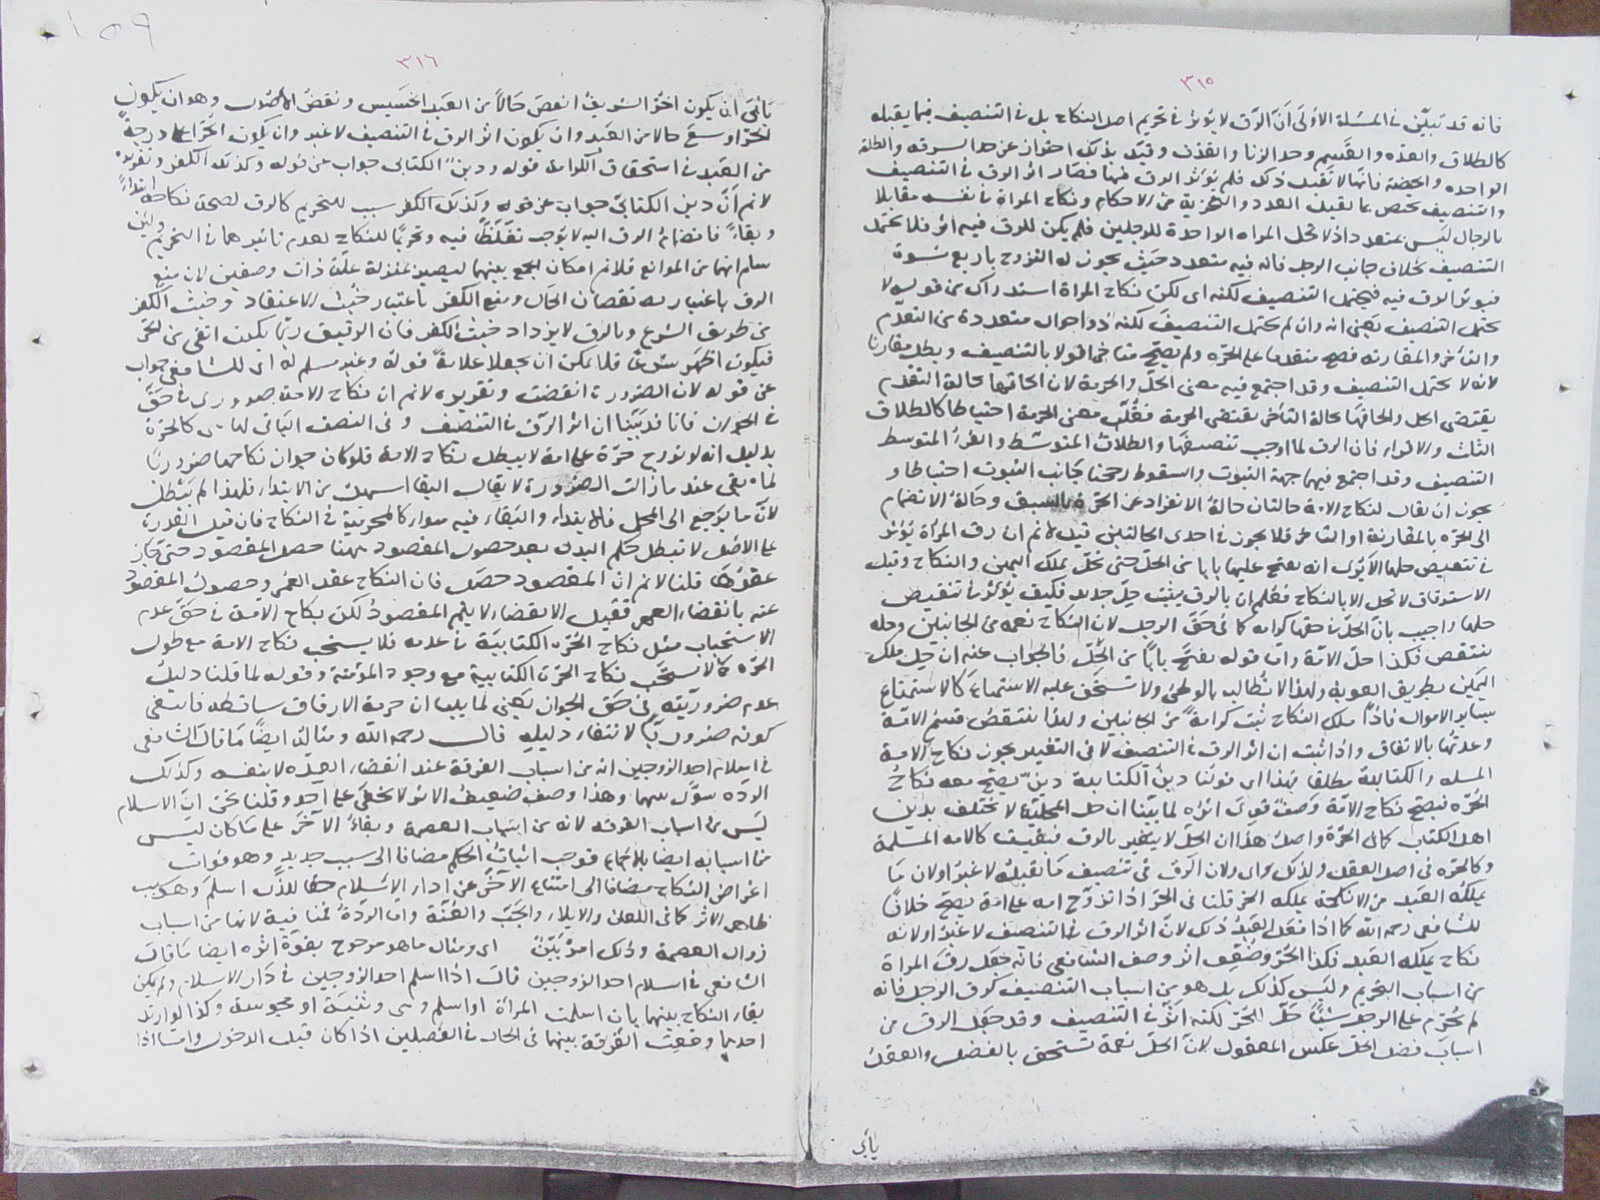 ٣١٥
فانه قد تبيّن فى المسئلة الاولى انّ الرّق لا يؤثر فى تحريم اصل النكاح بل فى التنصيف فيما يقبله
كالطلاق والعدّه والقسم وحد الزنا والقذف وقيّد بذلك احتراز عن حد السرقه والطلقة
الواحده والحيضة فانها لا تقبل ذلك فلم يؤثر الرق فيها فصار اثر الرق فى التنصيف
والتنصيف يختص بما يقبل العدد والتجزية من الاحكام ونكاح المراة فى نفسه مقابلا
بالرجال ليس بمتعدد اذ لا تحل المراه الواحدة للرجلين فلم يكن للرق فيه اثر فلا يحتمل
التنصيف بخلاف جانب الرجل فانه فيه متعدد حيث يجوز له التزوج باربع نسوة
فيؤثر الرق فيه فيحتمل التنصيف لكنه اى لكن نكاح المراة استدراك من قوله لا
يحتمل التنصيف يعنى انه وان لم يحتمل التنصيف لكنه ذو احوال متعددة من التقدم
والتأخر والمقارنه فصح متقدما على الحرّه ولم يصح متاخرا قولا بالتنصيف وبطل مقارنا
لانه لا يحتمل التنصيف وقد اجتمع فيه معنى الحلّ والحرمة لان الحاقها بحالة التقدم
يقتضى الحل والحاقها بحالة التأخر يقتضى الحرمة فغلّب معنى الحرمة احتياطا كالطلاق
الثلث والاقراء فان الرق لما اوجب تنصيفها والطلاق المتوسّط والقرء المتوسط
التنصيف وقد اجتمع فيهما جهة الثبوت والسقوط رجحنا جانب الثبوت احتياطا و
يجوز ان يقال لنكاح الامة حالتان حالة الانفراد عن الحرّة بالسبق وحالة الانضمام
الى الحرّه بالمقارنة او التأخر فلا يجوز فى احدى الحالتين قيل لا نم ان رق المرأة يؤثر
فى تنقيص حلها الا يرى انه يفتح عليها بابا من الحلّ حتى تحلّ بملك اليمين والنكاح وقبل
الاسترقاق لا تحل الا بالنكاح فعلم ان بالرق يثبت حلّ جديد فكيف يؤثر فى تنقيص
حلها واجيب بانّ الحلّ فى حقها كرامه كما فى حقّ الرجل لان النكاح نعمه من الجانبين وحله
ينتقص فكذا حلّ الامة وامّا قوله يفتح بابًا من الحلّ فالجواب عنه ان حل ملك
اليمين بطريق العقوبة ولهذا لا تطالبه بالوطئ ولا تستحق عليه الاستمتاع كالاستمتاع
بساير الاموال فاذًا ملك النكاح ثبت كرامةً من الجانبين ولهذا ينتقص قسم الامة
وعدتها بالاتفاق واذا ثبت ان اثر الرق فى التنصيف لا فى التغيير يجوز نكاح الامة
المسلمه والكتابية مطلقا بهذا اى قولنا دين الكتابية دينٌ يصح معه نكاح
الحُرّه فيصح نكاح الامة وصفٌ قوىّ اثره لما بيّنا ان حل المحليّة لا تختلف بدين
اهل الكتاب كما فى الحرّة واصل هذا ان الحلّ لا يتغير بالرق فبقيت كالامه المسلمة
وكالحرّه فى اصل العقد ولذلك اى ولان الرق فى تنصيف ما يقبله لا غير اولان ما
يملكه العبد من الانكحة يملكه الحر قلنا فى الحرّ اذا تزوّج امه على امة يصح خلافًا
للشافعى رحمه اللّه كما اذا فعل العبد ذلك لانّ اثر الرق فى التنصيف لا غير اولانه
نكاح يملكه العبد فكذا الحُرّ وضُعّف اثر وصف الشافعى فانه جعل رقّ المراة
من اسباب التحريم وليس كذلك بل هو من اسباب التنصيف كرق الرجل فانه
لم يحرّم على الرجل شيئًا حلّ للحرّ لكنه أثّر فى التنصيف وقد جعل الرق من
اسباب فضل الحلّ عكس المعقول لانّ الحلّ نعمة تستحق بالفضل والعقل
يأبى
١٥٩
٣١٦
يأبى ان يكون الحُرّ الشريفُ انقصَ حالاً من العبد الخسيس ونقضَ الاصول وهو ان يكون
الحرّ اوسعَ حالا من العبد وان يكون اثر الرق فى التنصيف لا غير وان يكون الحرّ اعلا درجةً
من العبد فى استحقاق الكرامة قوله ودين الكتابى جواب عن قوله وكذلك الكفر وتقريره
لا نم انّ دين الكتابىّ جواب عن قوله وكذلك الكفر سبب للتحريم كالرق لصحة نكاحه ابتداءً
وبقاءً فانضمام الرق اليه لا يوجب تغلّظًا فيه وتحريمًا للنكاح لعدم تاثيرهما فى التحريم ولئن
سلم انهما من الموانع فلا نم امكان الجمع بينهما ليصير بمنزلة علّة ذات وصفين لان منع
الرق باعتبار نقصان الحال ومنع الكفر باعتبار خُبث الاعتقاد وخبث الكفر
من طريق الشرع وبالرق لا يزداد خبث الكفر فان الرقيق ربّما يكون اتقى من الحرّ
فيكون اطهر شرعًا فلا يمكن ان يجعلا علةً قوله وعند مسلم له اى للشافعى جواب
عن قوله لان الضرورة انقضت وتقريره لا نم ان نكاح الامة ضرورى فى حقّ
فى الجواز فانا قد بيّنا ان اثر الرّق فى التنصيف وفى النصف الباقى كالحرّة
بدليل انه لو تزوج حرّة على امة لا يبطل نكاح الامة فلو كان جواز نكاحها ضروريًّا
لما بقى عند ما زالت الضرورة لا يقال البقا اسهل من الابتداء فلهذا لم يبطل
لانّ ما يرجع الى المحل فالابتداء والبقاء فيه سواء كالمحرمية فى النكاح فان قيل القدرة
على الاصل لا تبطل حكم البدل بعد حصول المقصود وههنا حصل المقصود حتى جاز
عقدها قلنا لا نم انّ المقصود حصل فان النكاح عقد العمر وحصول المقصود
عنه بانقضاء العمر فقبل الانقضاء لا يتم المقصود لكن نكاح الامة فى حقّ عدم
الاستحباب مثل نكاح الحُرّه الكتابيّة فى عدمه فلا يستحب نكاح الامة مع طول
الحرّه كما لا يستحبّ نكاح الحرّة الكتابية مع وجود المؤمنة وقوله لما قلنا دليل
عدم ضروريّته فى حقّ الجواز يعنى لما بيّنا ان حرمة الارقاق ساقطه فانتفى
كونه ضروريًّا لانتفاء دليله قال رحمه اللّه ومثاله ايضًا ما قال الشافعى
فى اسلام احد الزوجين انه من اسباب الفرقة عند انقضاء العدّه لا بنفسه وكذلك
الردّه سوّى بينهما وهذا وصف ضعيف الاثر لا يخفى على احد وقلنا نحن انّ الاسلام
ليس من اسباب الفرقه لانه من اسباب العصمة وبقاءُ الآخَر على ما كان ليس
من اسبابه ايضا بالاجماع فوجب اثبات الحكم مضافا الى سبب جديد وهو فوات
اغراض النكاح مضافا الى امتناع الآخر عن اداء الاسلام حقا للذى اسلم وهو سبب
ظاهر الاثر كما فى اللعان والايلاء والجَبّ والعُنّة وامّا الردّةُ فمنافية لانها من اسباب
زوال العصمة وذلك امرٌ بيّنٌ اى ومثال ما هو مرجوح بقوّة اثره ايضا ما قال
الشافعى فى اسلام احد الزوجين قال اذا اسلم احد الزوجين فى دار الاسلام ولم يكن
بقاء النكاح بينهما بان اسلمت المرأة او اسلم وهى وثنيّة او مجوسية وكذا لو ارتد
احدهما وقعت الفُرقة بينهما فى الحال فى الفصلين اذا كان قبل الدخول وامّا اذا